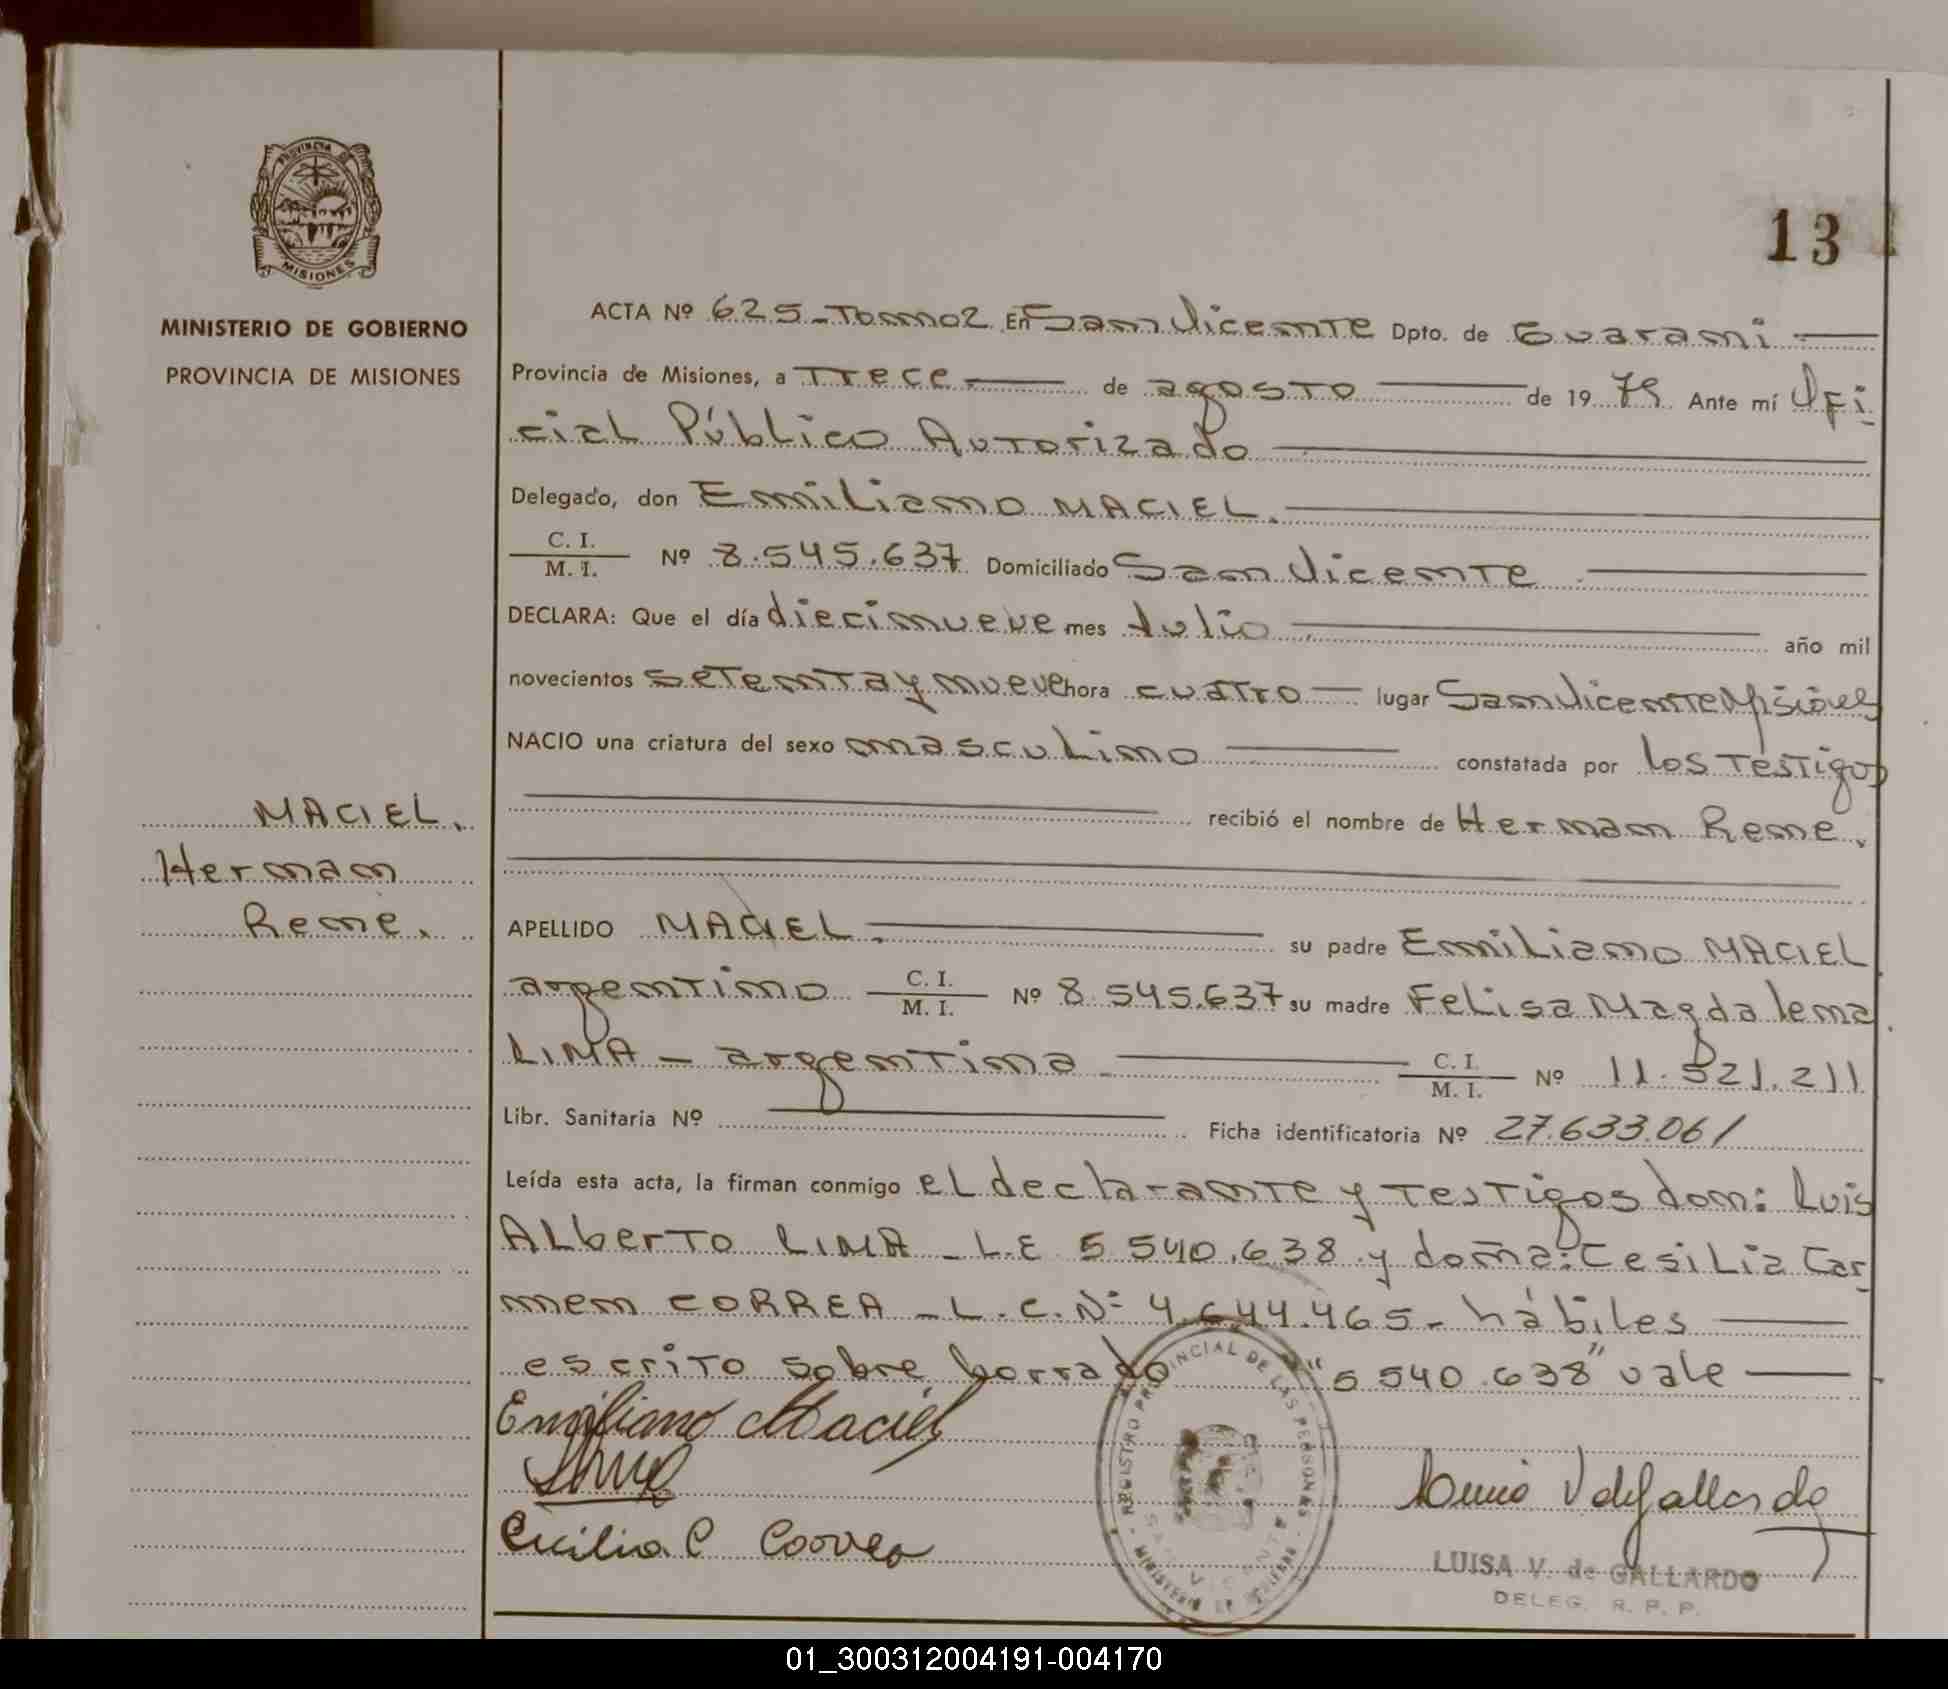 PROVINCIA DE
MISIONES
MINISTERIO DE GOBIERNO
PROVINCIA DE MISIONES
13
ACTA Nº 625-Tomo2 En San Vicente Dpto. de Guarani
Provincia de Misiones, a Trece de agosto de 1979 Ante mí Ofi
cial Público Autorizado
Delegado, don Emiliano MACIEL.
C. I.
M. I. Nº 8.545.637 Domiciliado San Vicente
DECLARA: Que el día diecinueve mes Julio año mil
novecientos setenta y nueve hora cuatro lugar San Vicente Misiones
NACIO una criatura del sexo masculino constatada por los Testigos
recibió el nombre de Hernan Rene.
MACIEL.
Hernan
Rene.
APELLIDO MACIEL. su padre Emiliano MACIEL
argentino C. I.
M. I. Nº 8.545.637 su madre Felisa Magdalena
LIMA - argentina C. I.
M. I. Nº 11.521.211
Libr. Sanitaria Nº Ficha identificatoria Nº 27.633.061
Leída esta acta, la firman conmigo el declarante y testigos don: Luis
Alberto LIMA - L.E 5.540.638 y doña: Cesilia Car
men CORREA - L.C.Nº 4.644.465- hábiles
escrito sobre borrado "5.540.638" vale
Emiliano Maciel
Cecilia C Correa
REGISTRO PROVINCIAL DE LAS PERSONAS
SAN VICENTE
MINISTERIO DE GOBIERNO
LUISA V. de GALLARDO
DELEG. R. P. P.
01_300312004191-004170